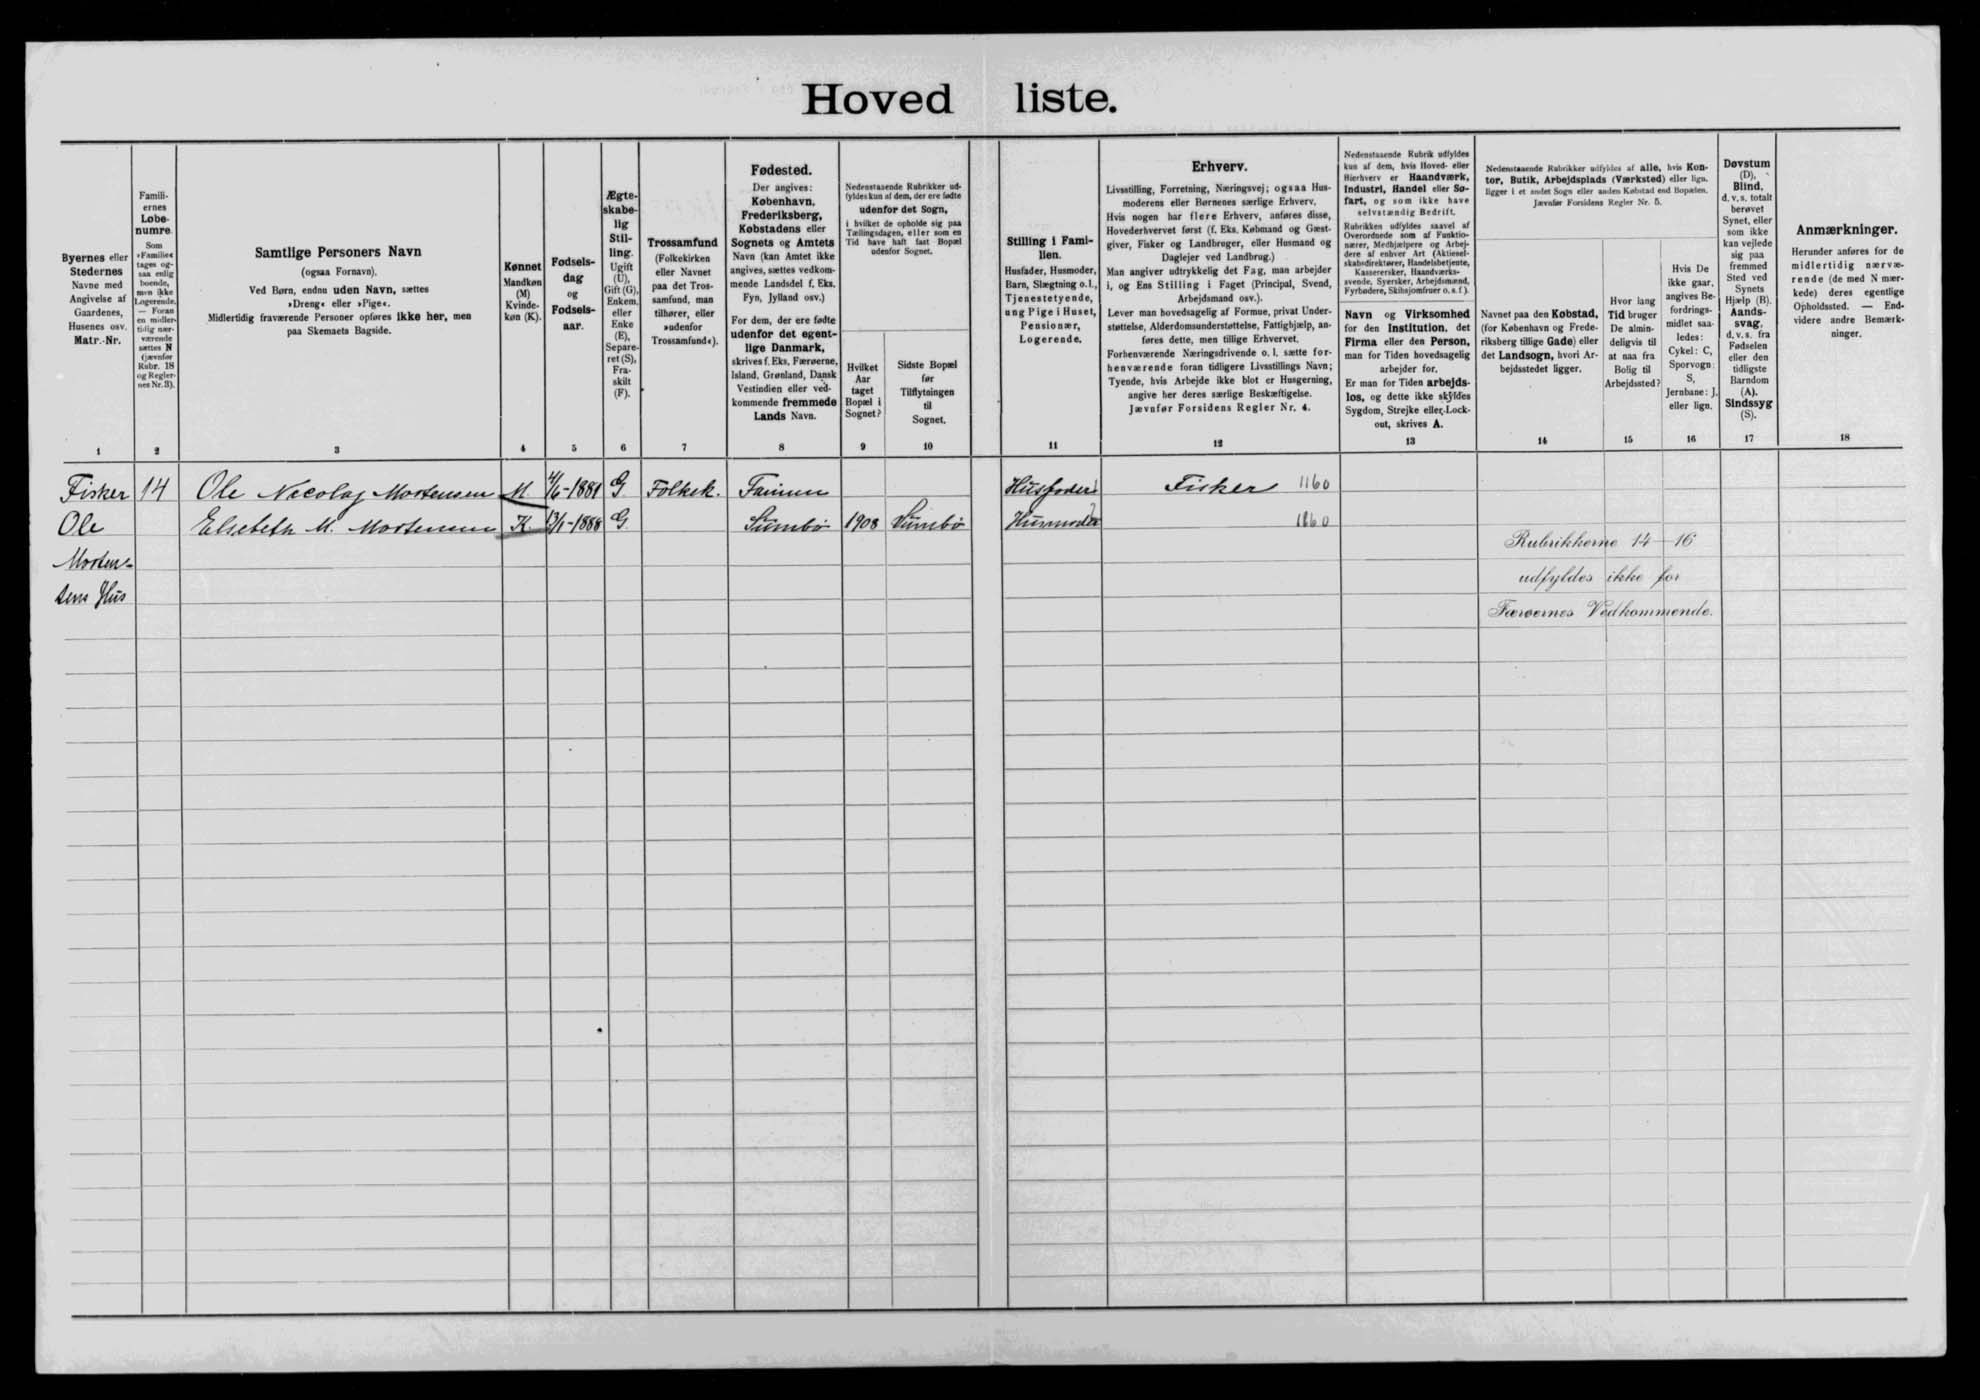 Hovedliste.
Byernes eller
Stedernes
Navne med
Angivelse af
Gaardenes,
Husenes osv.
Matr.-Nr.
1
Famili-
ernes
Løbe-
numre.
Som
»Familie«
tages og-
saa enlig
boende,
men ikke
Logerende.
— Foran
en midler-
tidig nær-
værende
sættes N
(jævnfør
Rubr. 18
og Regler-
nes Nr. 3).
2
Samtlige Personers Navn
(ogsaa Fornavn).
Ved Børn, endnu uden Navn, sættes
»Dreng« eller »Pige«.
Midlertidig fraværende Personer opføres ikke her, men
paa Skemaets Bagside.
3
Kønnet
Mandkøn
(M)
Kvinde-
køn (K).
4
Fødsels-
dag
og
Fødsels-
aar.
5
Ægte-
skabe-
lig
Stil-
ling.
Ugift
(U),
Gift (G),
Enkem.
eller
Enke
(E),
Separe-
ret (S),
Fra-
skilt
(F).
6
Trossamfund
(Folkekirken
eller Navnet
paa det Tros-
samfund, man
tilhører, eller
»udenfor
Trossamfund«).
7
Fødested.
Der angives:
København,
Frederiksberg,
Købstadens eller
Sognets og Amtets
Navn (kan Amtet ikke
angives, sættes vedkom-
mende Landsdel f. Eks.
Fyn, Jylland osv.)
For dem, der ere fødte
udenfor det egent-
lige Danmark,
skrives f. Eks. Færøerne,
Island, Grønland, Dansk
Vestindien eller ved-
kommende fremmede
Lands Navn.
8
Nedenstaaende Rubrikker ud-
fyldes kun af dem, der ere fødte
udenfor det Sogn,
i hvilket de opholde sig paa
Tællingsdagen, eller som en
Tid have haft fast Bopæl
udenfor Sognet.
Hvilket
Aar
taget
Bopæl i
Sognet?
9
Sidste Bopæl
før
Tilflytningen
til
Sognet.
10
Stilling i Fami-
lien.
Husfader, Husmoder,
Barn, Slægtning o.l.,
Tjenestetyende,
ung Pige i Huset,
Pensionær,
Logerende.
11
Erhverv.
Livsstilling, Forretning, Næringsvej; ogsaa Hus-
moderens eller Børnenes særlige Erhverv.
Hvis nogen har flere Erhverv, anføres disse,
Hovederhvervet først (f. Eks. Købmand og Gæst-
giver, Fisker og Landbruger, eller Husmand og
Daglejer ved Landbrug.)
Man angiver udtrykkelig det Fag, man arbejder
i, og Ens Stilling i Faget (Principal, Svend,
Arbejdsmand osv.).
Lever man hovedsagelig af Formue, privat Under-
støttelse, Alderdomsunderstøttelse, Fattighjælp, an-
føres dette, men tillige Erhvervet.
Forhenværende Næringsdrivende o. l. sætte for-
henværende foran tidligere Livsstillings Navn;
Tyende, hvis Arbejde ikke blot er Husgerning,
angive her deres særlige Beskæftigelse.
Jævnfør Forsidens Regler Nr. 4.
12
Nedenstaaende Rubrik udfyldes
kun af dem, hvis Hoved- eller
Bierhverv er Haandværk,
Industri, Handel eller Sø-
fart, og som ikke have
selvstændig Bedrift.
Rubrikken udfyldes saavel af
Overordnede som af Funktio-
nærer, Medhjælpere og Arbej-
dere af enhver Art (Aktiesel-
skabsdirektører, Handelsbetjente,
Kasserersker, Haandværks-
svende, Syersker, Arbejdsmænd,
Fyrbødere, Skibsjomfruer o. s. f.).
Navn og Virksomhed
for den Institution, det
Firma eller den Person,
man for Tiden hovedsagelig
arbejder for.
Er man for Tiden arbejds-
løs, og dette ikke skyldes
Sygdom, Strejke eller Lock-
out, skrives A.
13
Nedenstaaende Rubrikker udfyldes af alle, hvis Kon-
tor, Butik, Arbejdsplads (Værksted) eller lign.
ligger i et andet Sogn eller anden Købstad end Bopælen.
Jævnfør Forsidens Regler Nr. 5.
Navnet paa den Købstad,
(for København og Frede-
riksberg tillige Gade) eller
det Landsogn, hvori Ar-
bejdsstedet ligger.
14
Hvor lang
Tid bruger
De almin-
deligvis til
at naa fra
Bolig til
Arbejdssted?
15
Hvis De
ikke gaar,
angives Be-
fordrings-
midlet saa-
ledes:
Cykel: C,
Sporvogn:
S,
Jernbane: J.
eller lign.
16
Døvstum
(D),
Blind,
d. v. s. totalt
berøvet
Synet, eller
som ikke
kan vejlede
sig paa
fremmed
Sted ved
Synets
Hjælp (B).
Aands-
svag,
d. v. s. fra
Fødselen
eller den
tidligste
Barndom
(A).
Sindssyg
(S).
17
Anmærkninger.
Herunder anføres for de
midlertidig nærvæ-
rende (de med N mær-
kede) deres egentlige
Opholdssted. — End-
videre andre Bemærk-
ninger.
18
Fisker 14 Ole Nicolaj Mortensen M. 4/6-1881 G. Folkek. Famien Husfader Fisker 1160
Ole Elsebeth M. Mortensen K. 13/1-1888 G. Sumbø 1908 Sumbø Husmoder 1160
Morten-
sens Hus
Rubrikkerne 14-16
udfyldes ikke for
Færøernes Vedkommende.